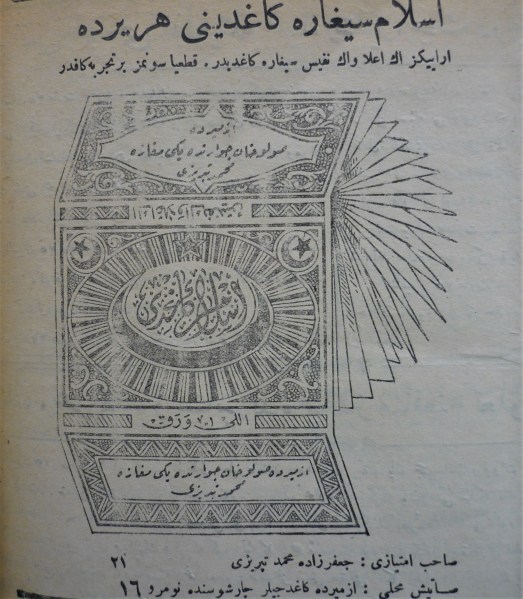 اسلام سیغاره كاغدینی هر یرده
ارایكز اڭ اعلا واڭ نفیس سیغاره كاغدیدر. قطعیا سونمز بر تجربه كافدر
ازمیرده
صولو خان جوارنده یكی مغازه
محمد تبریزی
اسلام كاغدی
اللی ورق
ازمیرده صولو خان جوارنده یكی مغازه
محمود تبریزی
صاحب امتیازی : جعفرزاده محمد تبریزی ٢١
صاتیش محلی : ازمیرده كاغدجیلر چارشوسنده نومرو ١٦